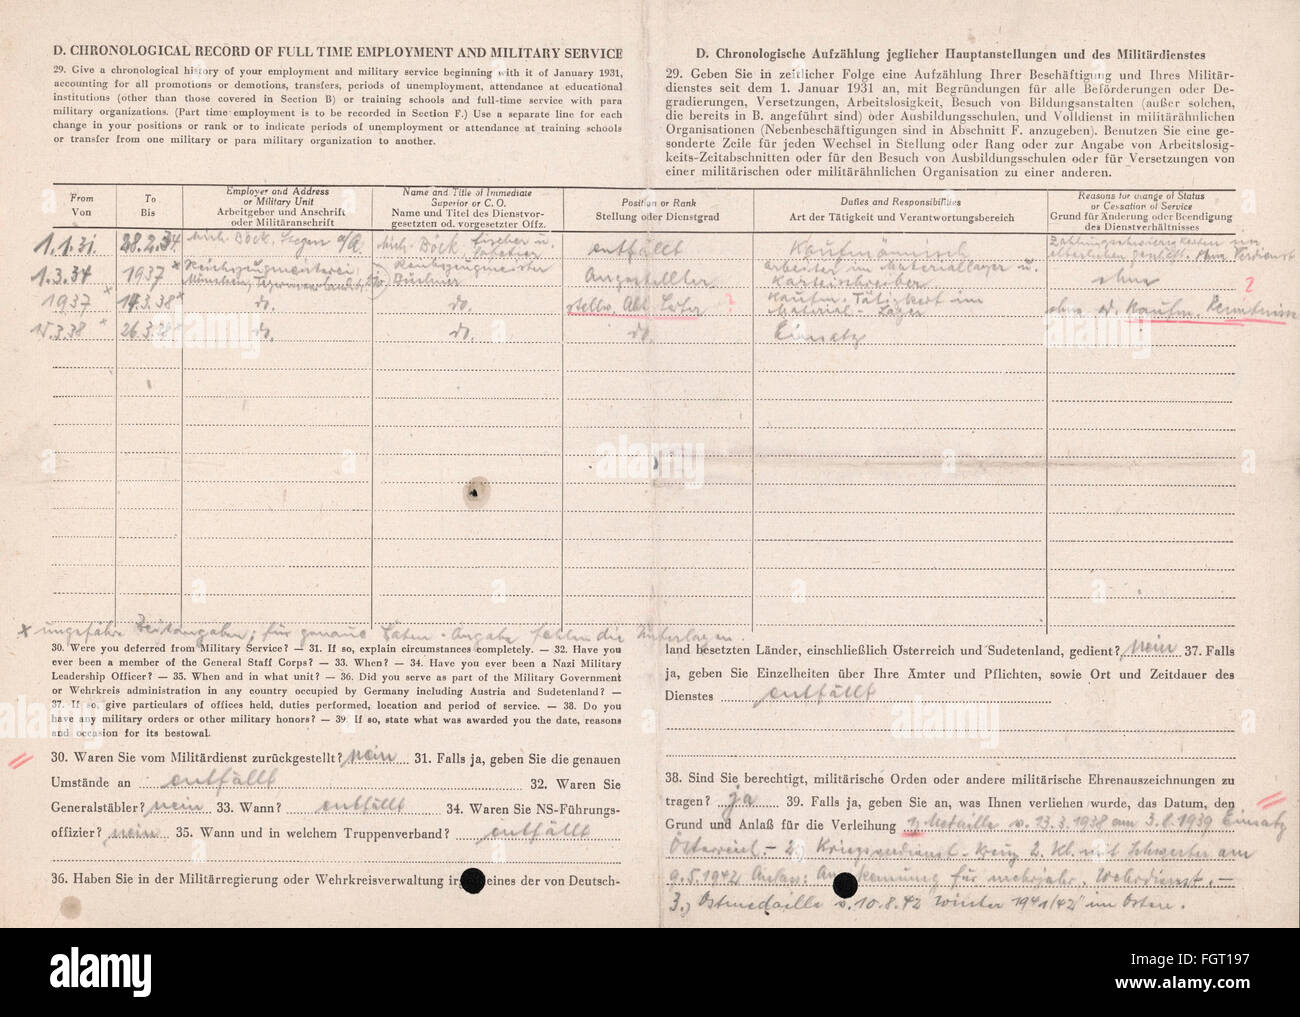 D. CHRONOLOGICAL RECORD OF FULL TIME EMPLOYMENT AND MILITARY SERVICE
29. Give a chronological history of your employment and military service beginning with it of January 1931,
accounting for all promotions or demotions, transfers, periods of unemployment, attendance at educational
institutions (other than those covered in Section B) or training schools and full-time service with para
military organizations. (Part time employment is to be recorded in Section F.) Use a separate line for each
change in your positions or rank or to indicate periods of unemployment or attendance at training schools
or transfer from one military or para military organization to another.
D. Chronologische Aufzählung jeglicher Hauptanstellungen und des Militärdienstes
29. Geben Sie in zeitlicher Folge eine Aufzählung Ihrer Beschäftigung und Ihres Militär-
dienstes seit dem 1. Januar 1931 an, mit Begründungen für alle Beförderungen oder De-
gradierungen, Versetzungen, Arbeitslosigkeit, Besuch von Bildungsanstalten (außer solchen,
die bereits in B. angeführt sind) oder Ausbildungsschulen, und Volldienst in militärähnlichen
Organisationen (Nebenbeschäftigungen sind in Abschnitt F. anzugeben). Benutzen Sie eine ge-
sonderte Zeile für jeden Wechsel in Stellung oder Rang oder zur Angabe von Arbeitslosig-
keits-Zeitabschnitten oder für den Besuch von Ausbildungsschulen oder für Versetzungen von
einer militärischen oder militärähnlichen Organisation zu einer anderen.
From
Von
To
Bis
Employer and Address
or Military Unit
Arbeitgeber und Anschrift
oder Militäranschrift
Name and Title of Immediate
Superior or C. O.
Name und Titel des Dienstvor-
gesetzten od. vorgesetzter Offz.
Position or Rank
Stellung oder Dienstgrad
Duties and Responsibilities
Art der Tätigkeit und Verantwortungsbereich
Reasons for change of Status
or Cessation of Service
Grund für Änderung oder Beendigung
des Dienstverhältnisses
1.1.31. 28.2.34. Mich. Böck, Mich. Böck, entfällt Kaufmännisch
1.3.34 1937 x Reichszeugmeisterei München, Reichszeugmeister Büchner Angestellter Arbeiter im Materiallager u. Karteischreiber ohne ?
1937 x 14.3.38 x do. do. stellv. Abt. Leiter ? Kaufm. Tätigkeit im Material-Lager ohne Kaufm. Kenntnisse
15.3.38 x 26.3.38 x do. do. do. Einsatz
x ungefähre Zeitangaben; für genaue Daten-Angabe fehlen die Unterlagen.
30. Were you deferred from Military Service? — 31. If so, explain circumstances completely. — 32. Have you
ever been a member of the General Staff Corps? — 33. When? — 34. Have you ever been a Nazi Military
Leadership Officer? — 35. When and in what unit? — 36. Did you serve as part of the Military Government
or Wehrkreis administration in any country occupied by Germany including Austria and Sudetenland? —
37. If so, give particulars of offices held, duties performed, location and period of service. — 38. Do you
have any military orders or other military honors? — 39. If so, state what was awarded you the date, reasons
and occasion for its bestowal.
30. Waren Sie vom Militärdienst zurückgestellt? nein 31. Falls ja, geben Sie die genauen
Umstände an entfällt 32. Waren Sie
Generalstäbler? nein 33. Wann? entfällt 34. Waren Sie NS-Führungs-
offizier? nein 35. Wann und in welchem Truppenverband? entfällt
36. Haben Sie in der Militärregierung oder Wehrkreisverwaltung eines der von Deutsch-
land besetzten Länder, einschließlich Österreich und Sudetenland, gedient? nein 37. Falls
ja, geben Sie Einzelheiten über Ihre Ämter und Pflichten, sowie Ort und Zeitdauer des
Dienstes entfällt
38. Sind Sie berechtigt, militärische Orden oder andere militärische Ehrenauszeichnungen zu
tragen? ja 39. Falls ja, geben Sie an, was Ihnen verliehen wurde, das Datum, den
Grund und Anlaß für die Verleihung 1) Medaille v. 13.3.1938 am 3.8.1939 Einsatz
Österreich. – 2.) Kriegsverdienst-Kreuz 2. Kl. mit Schwerter am
9.5.1942 Anlass: für mehrjähr. Wehrdienst. –
3.) Ostmedaille v. 10.8.42 "Winter 1941/42" im Osten.
alamy
alamy stock photo
FGT197
www.alamy.com